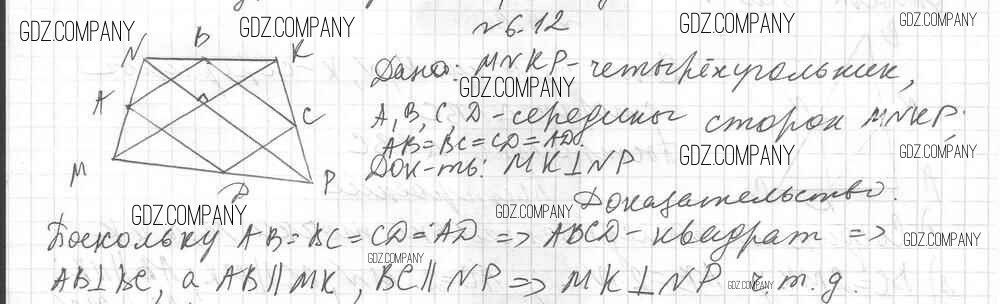 № 6.12
GDZ.COMPANY GDZ.COMPANY GDZ.COMPANY GDZ.COMPANY
N B K
Дано: MNKP - четырёхугольник,
GDZ.COMPANY
A C
A, B, C, D - середины сторон MNKP.
AB = BC = CD = AD.
Док-ть: MK ⊥ NP
GDZ.COMPANY GDZ.COMPANY
M D P
Доказательство.
GDZ.COMPANY GDZ.COMPANY
Поскольку AB = BC = CD = AD => ABCD - квадрат =>
GDZ.COMPANY GDZ.COMPANY
AB ⊥ BC, а AB || MK, BC || NP => MK ⊥ NP ч.т.д.
GDZ.COMPANY